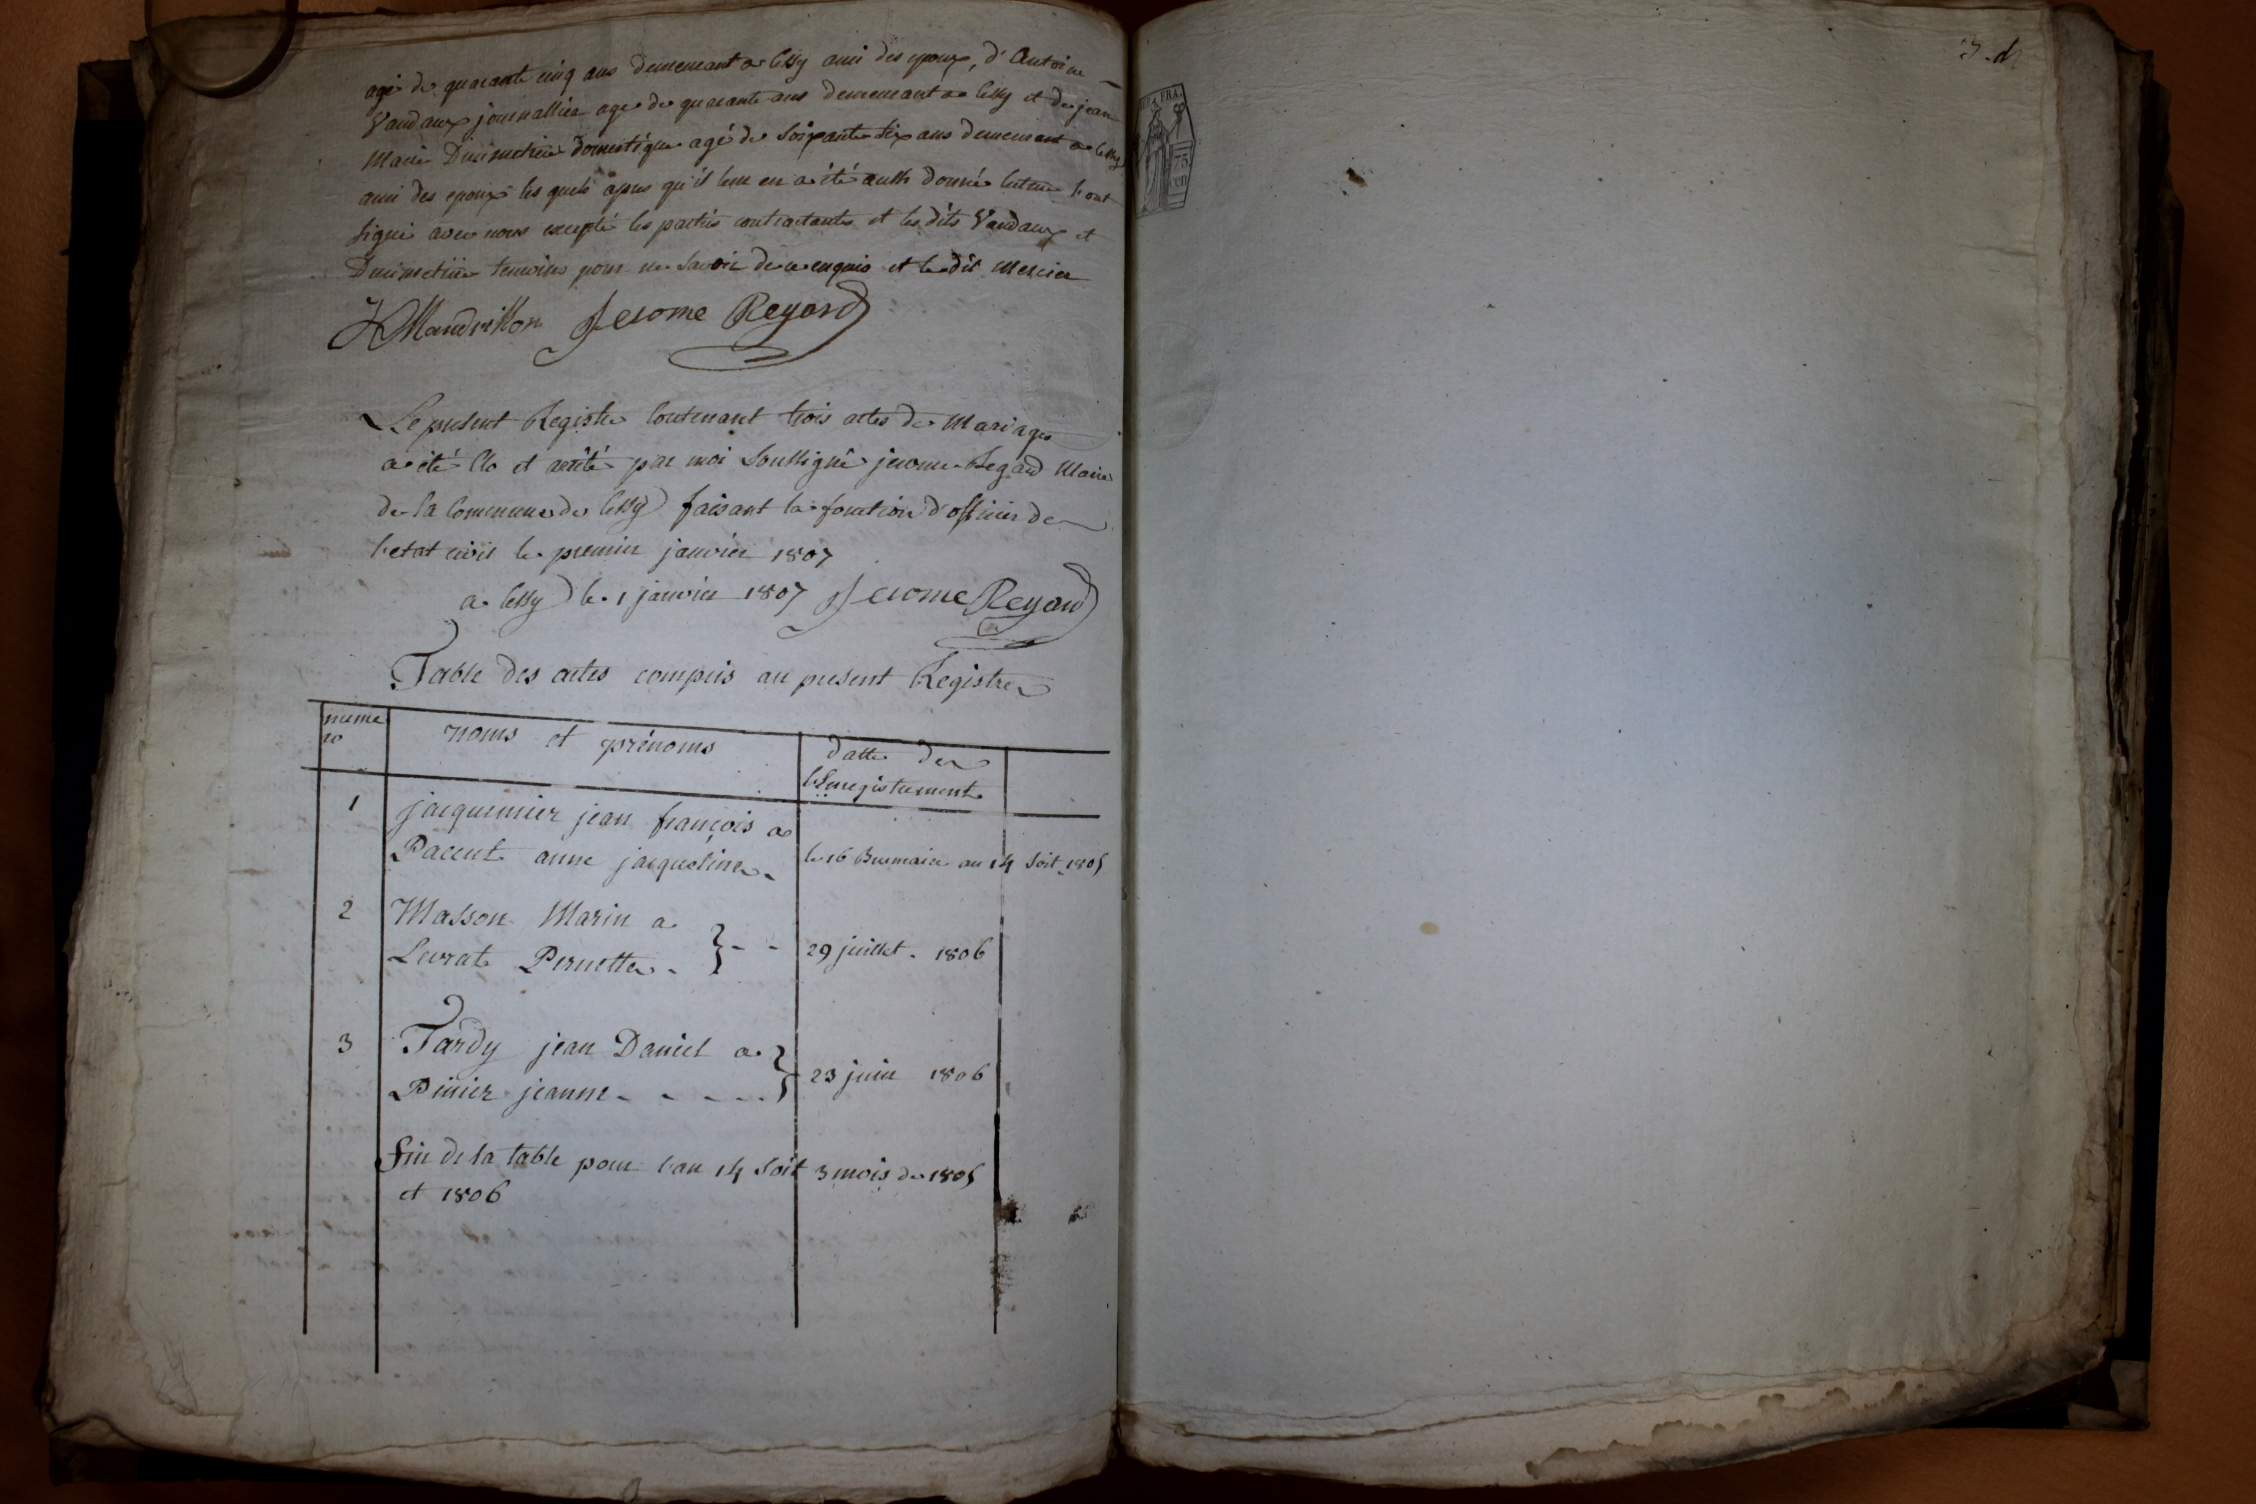 agé de quarante cinq ans demeurant a Cessy ami des epoux, d'Antoine
Vandaux journallier agé de quarante ans demeurant a Cessy et de jean
Marie domestique agé de soixante six ans demeurant a Cessy
ami des epoux les quels apres qu'il leur en a été aussi donné lecture l'ont
signé avec nous excepté les parties contractantes et les dits Vandaux et
temoins pour ne savoir de ce enquis et le dit Mercier
Mandrillon Jerome Regard
Le present Registre Contenant trois actes de Mariages
a été Clo et arrêté par moi Soussigné jerome Regard Maire
de la Commune de Cessy faisant la fonction d'officier de
l'etat civil le premier janvier 1807
a Cessy le 1 janvier 1807 Jerome Regard
Table des actes compris au present Registre
nume
ro
noms et prénoms
datte de
l'Enregistrement
1 jacquemier jean françois a
Pacent anne jacqueline
le 16 Brumaire an 14 soit 1805
2 Masson Marin a
Levrat Pernette
29 juillet 1806
3 Tardy jean Daniel a
Pinier jeanne
23 juin 1806
fin de la table pour l'an 14 soit 3 mois de 1805
et 1806
FRA.
75